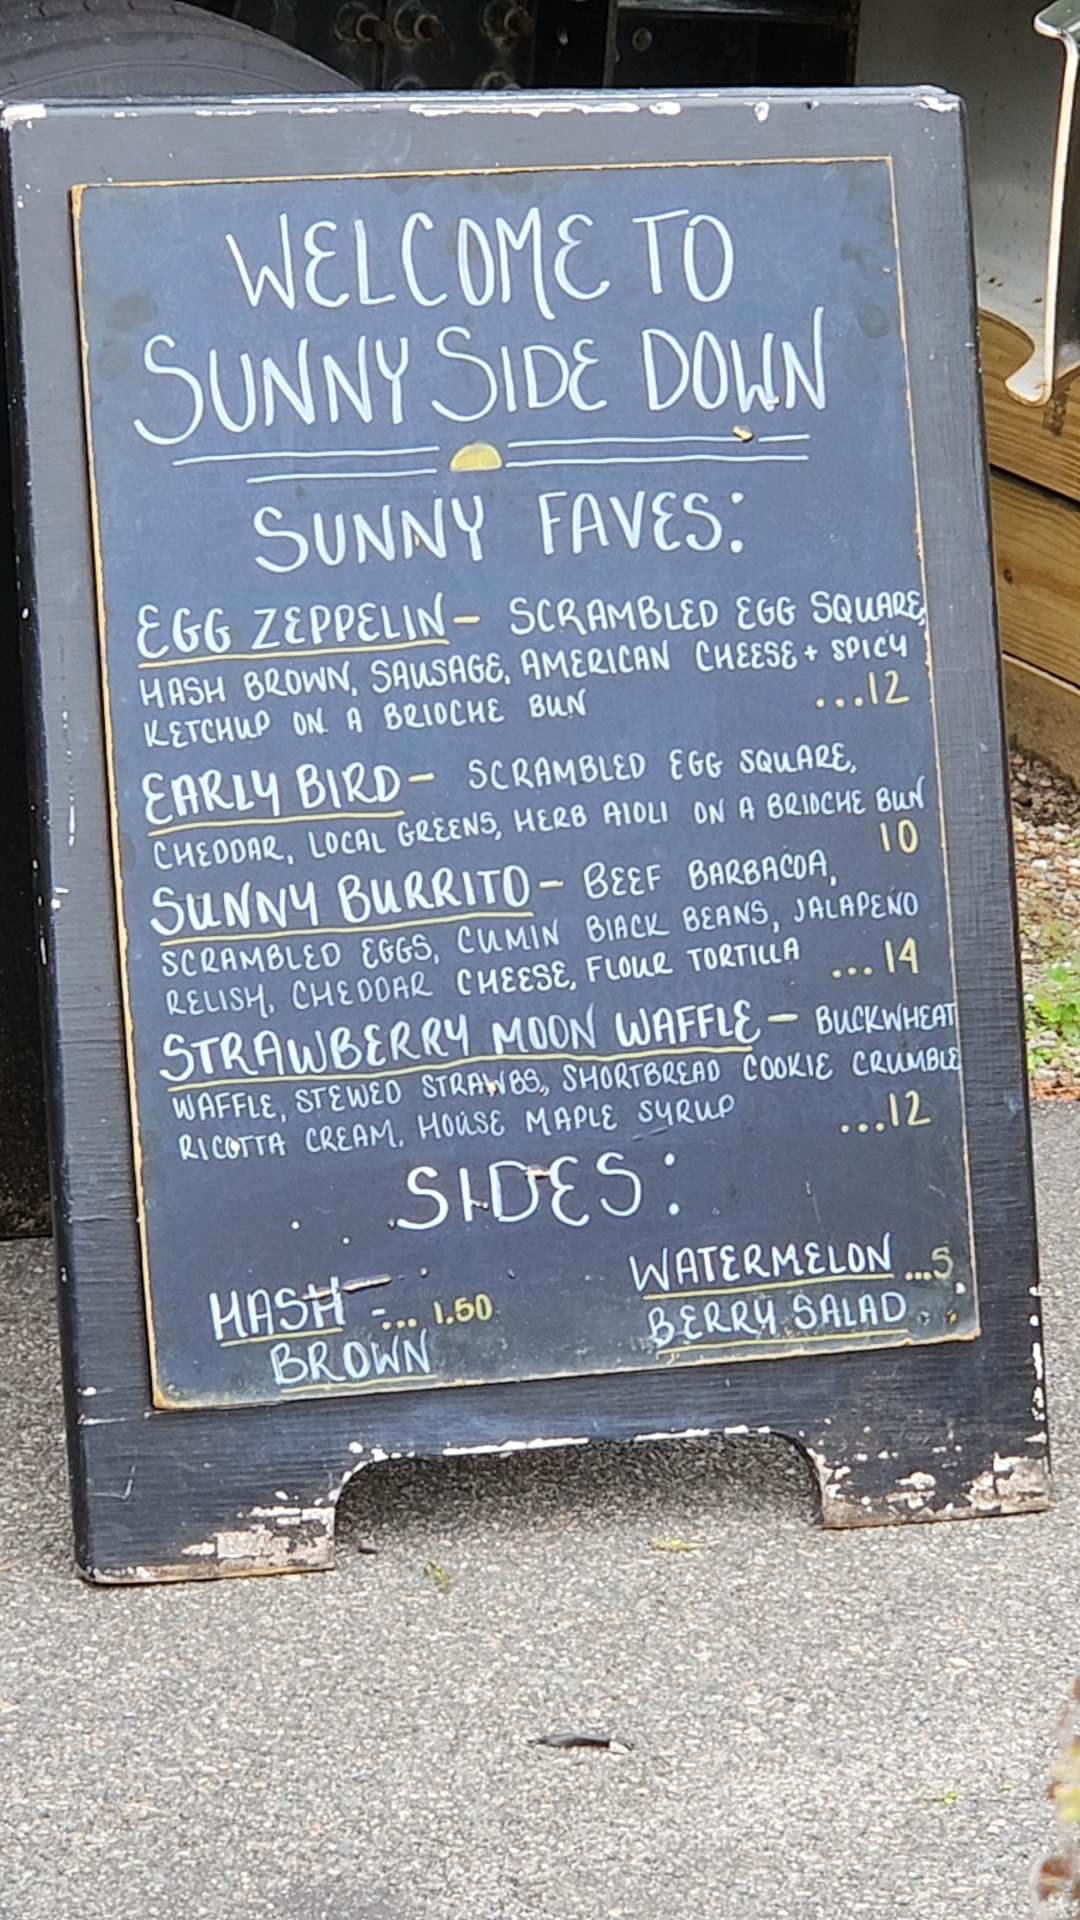 WELCOME TO
SUNNY SIDE DOWN
SUNNY FAVES:
EGG ZEPPELIN - SCRAMBLED EGG SQUARE,
HASH BROWN, SAUSAGE, AMERICAN CHEESE + SPICY
KETCHUP ON A BRIOCHE BUN ...12
EARLY BIRD - SCRAMBLED EGG SQUARE,
CHEDDAR, LOCAL GREENS, HERB AIOLI ON A BRIOCHE BUN
10
SUNNY BURRITO - BEEF BARBACOA,
SCRAMBLED EGGS, CUMIN BLACK BEANS, JALAPENO
RELISH, CHEDDAR CHEESE, FLOUR TORTILLA ...14
STRAWBERRY MOON WAFFLE - BUCKWHEAT
WAFFLE, STEWED STRAWBS, SHORTBREAD COOKIE CRUMBLE
RICOTTA CREAM, HOUSE MAPLE SYRUP ...12
SIDES:
HASH - ... 1.50
BROWN
WATERMELON ...5
BERRY SALAD